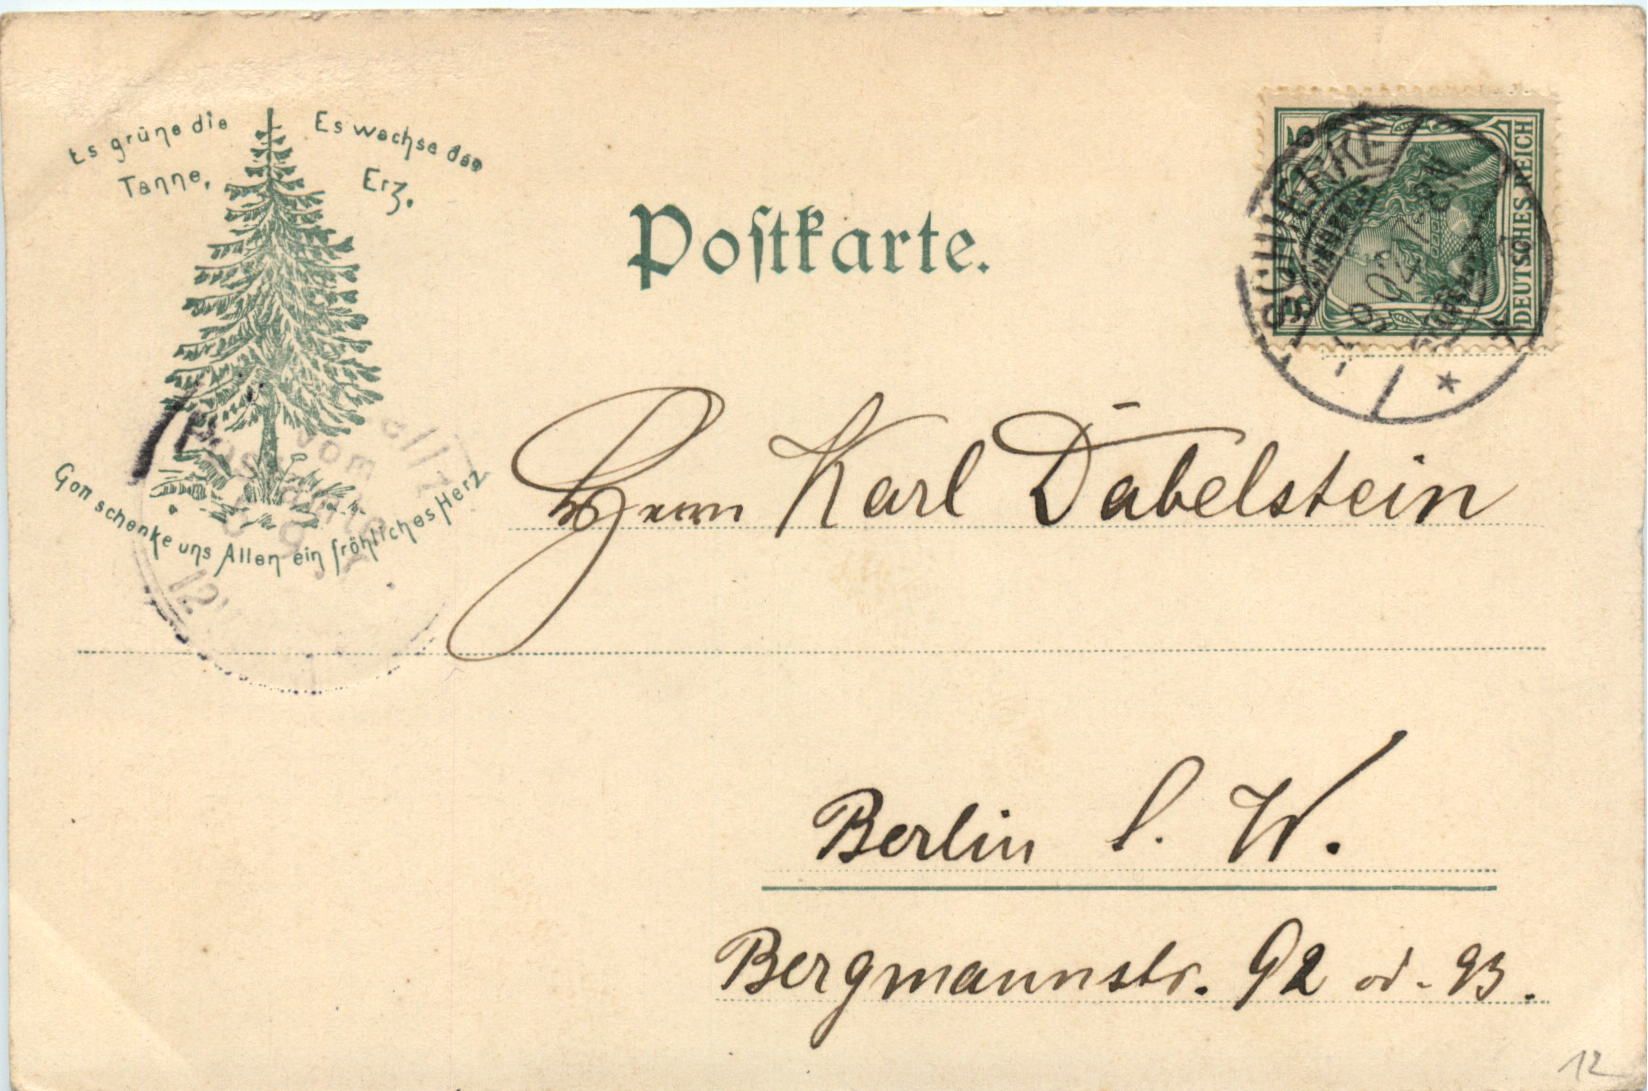 Es grüne die
Tanne,
Es wachse das
Erz.
Gott schenke uns Allen ein fröhliches Herz
Postkarte.
5
5
DEUTSCHES REICH
SCHIERKE
Bestellt
vom
Postamte
9
12
Herrn Karl Dabelstein
Berlin S. W.
Bergmannstr. 92 od. 93.
12